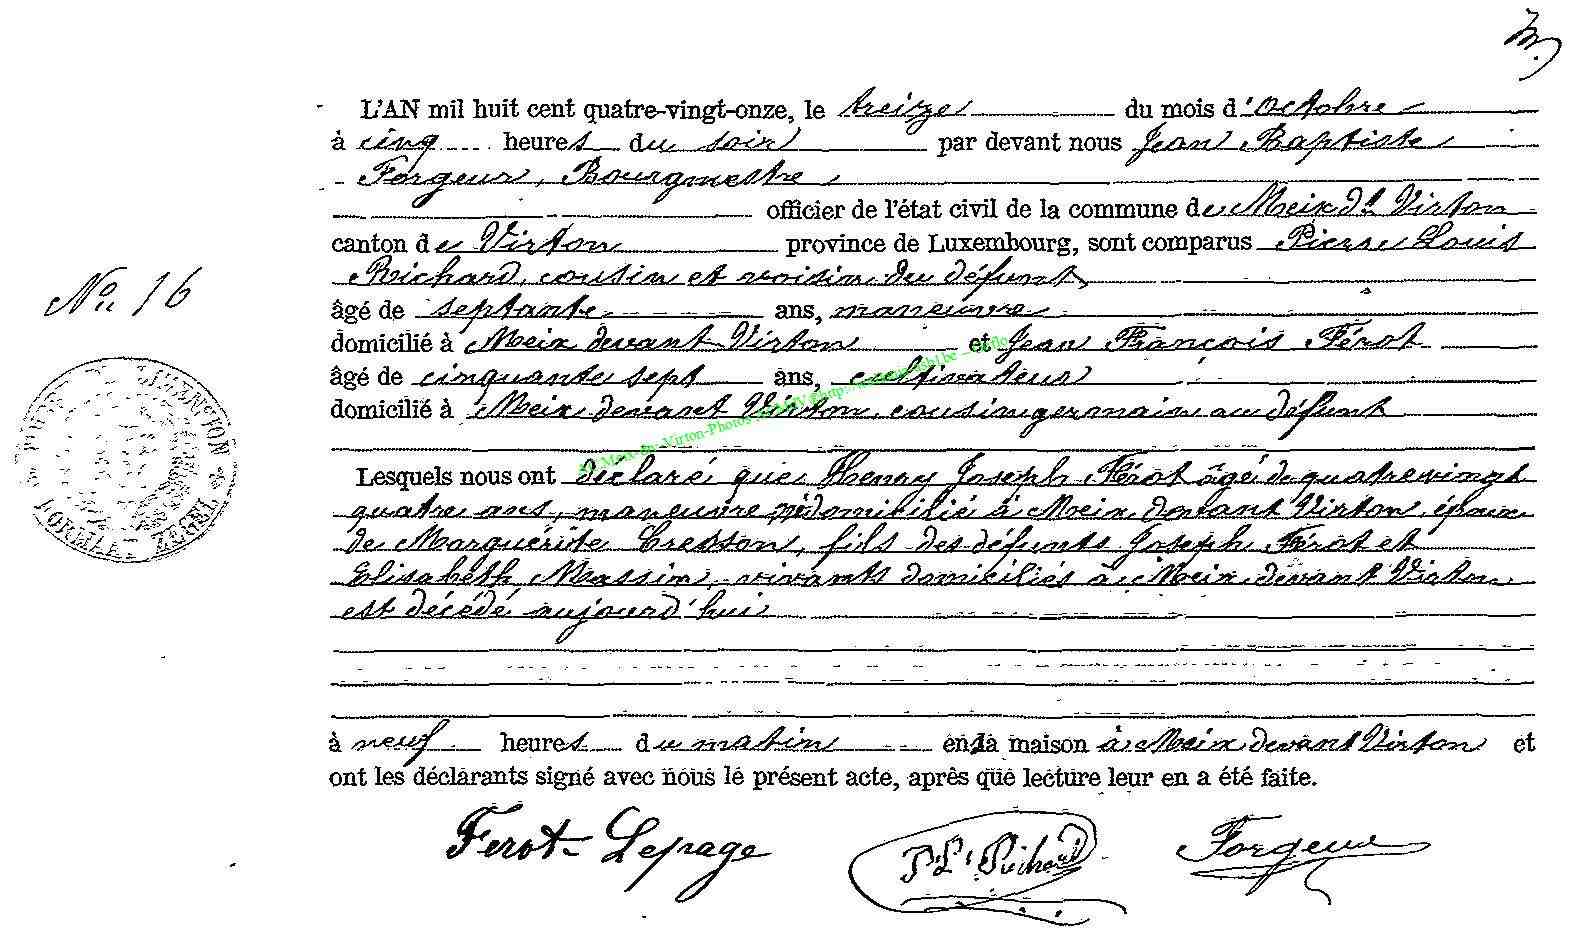 L'AN mil huit cent quatre-vingt-onze, le treize du mois d'octobre
à cinq heures du soir par devant nous Jean Baptiste
Forgeur, Bourgmestre,
officier de l'état civil de la commune de Meix dt Virton
canton de Virton province de Luxembourg, sont comparus Pierre Louis
Richard, cousin et voisin du défunt,
âgé de septante ans, maneuvre
domicilié à Meix devant Virton et Jean François Férot
âgé de cinquante sept ans, cultivateur
domicilié à Meix devant Virton, cousin germain au défunt
Lesquels nous ont déclaré que Henry Joseph Férot âgé de quatrevingt
quatre ans, maneuvre, né domicilié à Meix devant Virton, époux
de Marguerite Cresson, fils des défunts Joseph Férot et
Elisabeth Massin, vivants domiciliés à Meix devant Virton
est décédé aujourd'hui
à neuf heures du matin en la maison à Meix devant Virton et
ont les déclarants signé avec nous le présent acte, après que lecture leur en a été faite.
No 16
Ferot-Lepage
P. L. Richard
Forgeur